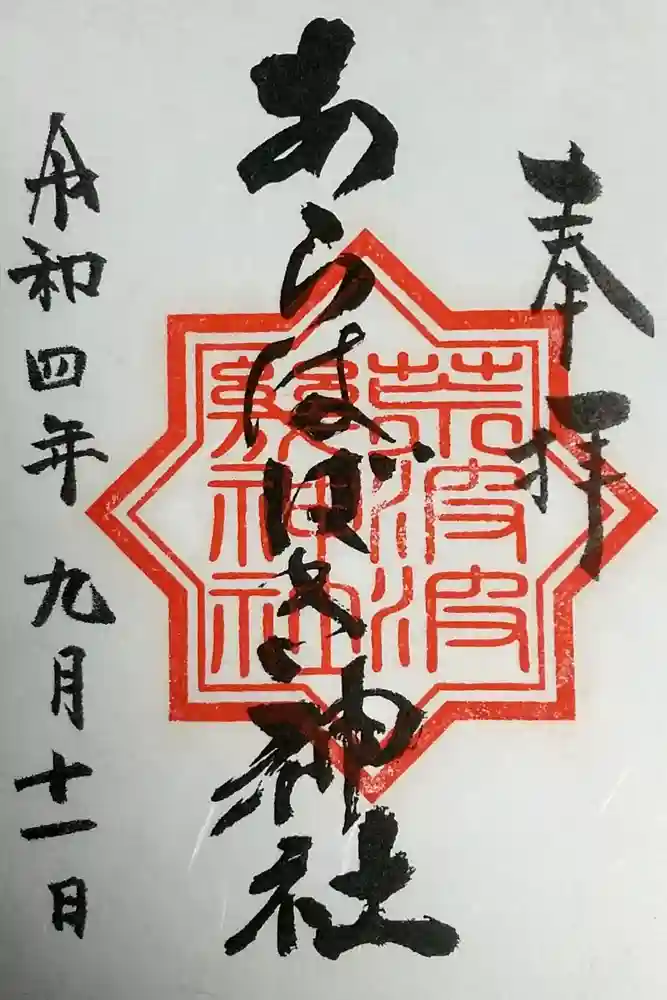 奉拝
あらはばき神社
荒波波
幾神社
令和四年九月十一日